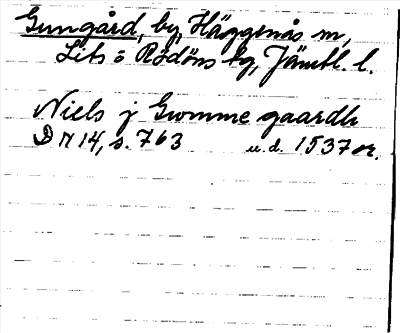 Gumgård, by, Häggenås sn,
Lits o Rödöns tg, Jämtl. l.
Niels j Gwmme gaardh
DN 14, s. 763 u.d. 1537 or.